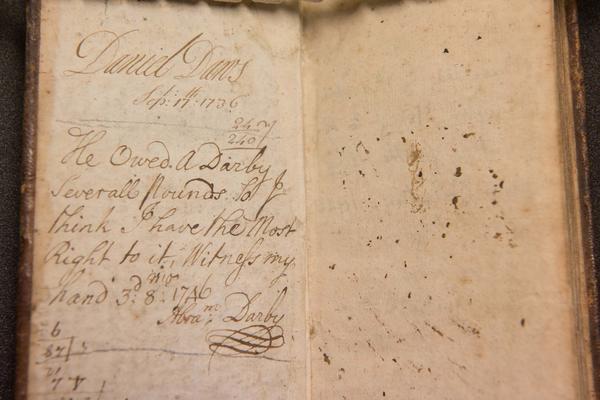 Daniel Daws
Sep: 17th 1736
247
240
He Owed A Darby
Severall Pounds So J
think J have the Most
Right to it, Witness my
hand 3d: 8: mo 1746
Abram: Darby
6